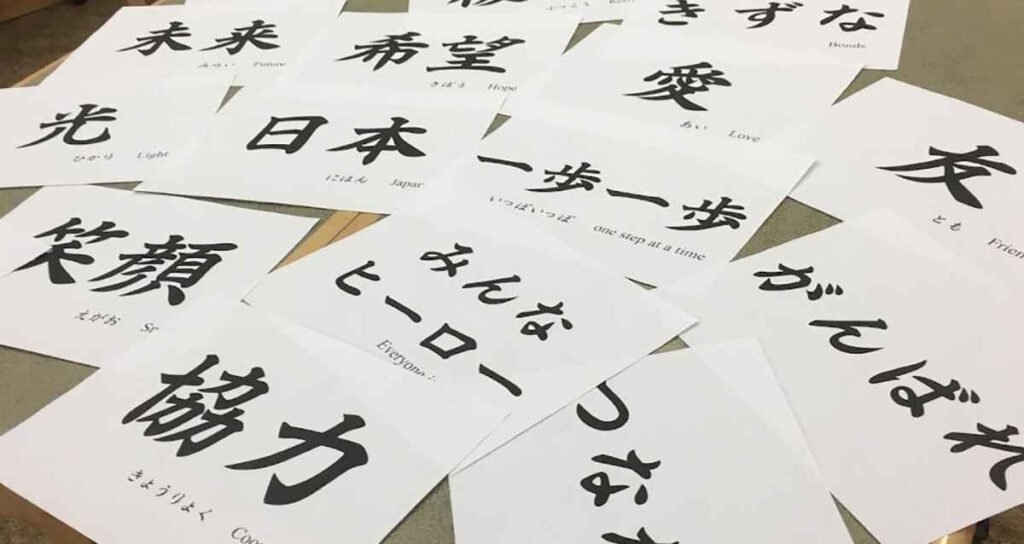 ふっこう
きずな
Bonds
未来
みらい Future
希望
きぼう Hope
愛
あい Love
光
ひかり Light
日本
にほん Japan
一歩一歩
いっぽいっぽ one step at a time
友
とも Frien
笑顔
えがお
みんな
ヒーロー
Everyone
がんばれ
協力
きょうりょく
つな